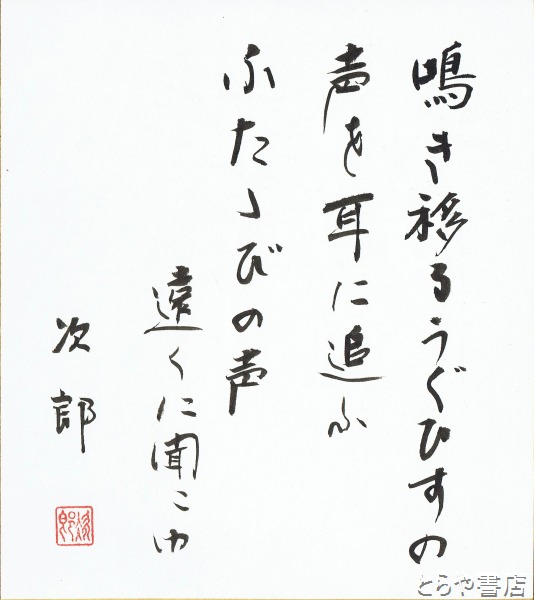 鳴き移るうぐひすの
声を耳に追ふ
ふたゝびの声
遠くに聞こゆ
次郎
とらや書店